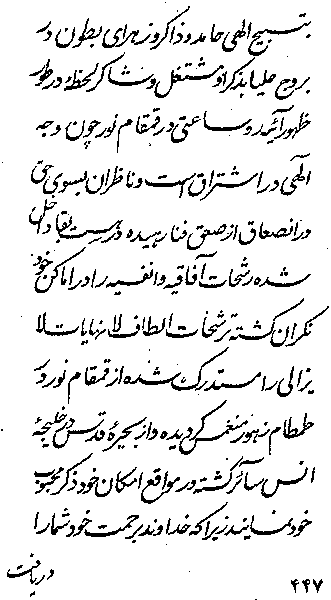 بتسبیح الهی حامد و ذاکر و زهرای بطون در
بروج علیا بذکر او مشتغل و شاکر لحظهٔ در طور
ظهور آئید و ساعتی در قمقام نور چون وجه
الهی در اشتراق است و ناظران بسوی حق
در انصعاق از صعق فنا رهیده در هست بقا داخل
شده رشحات آفاقیه و انفسیه را در اماکن خود
نگران گشته ترشحات الطاف لا نهایات لا
یزالی را مستدرک شده از قمقام نور در
طمطام ظهور منغمس گردیده و از بحیرهٔ قدس در خلیجهٔ
انس سائر گشته در مواقع امکان خود ذکر محبوب
خود نمایند زیرا که خداوند برحمت خود شما را
دریافت
۴۴۷